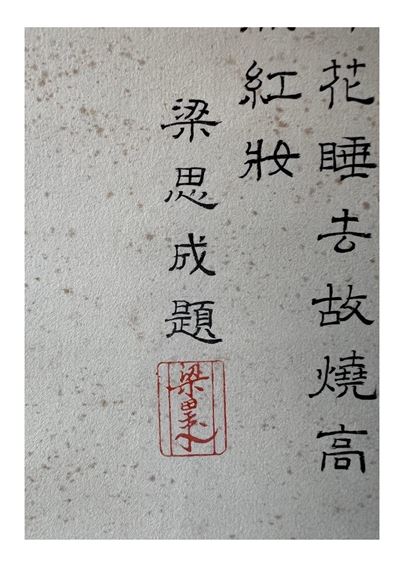 花睡去故燒高
紅妝
梁思成題
梁